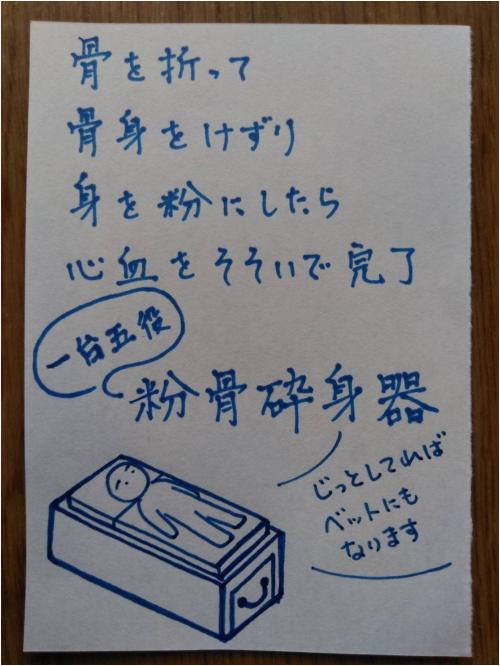 骨を折って
骨身をけずり
身を粉にしたら
心血をそそいで完了
一台五役
粉骨砕身器
じっとしてれば
ベットにも
なります